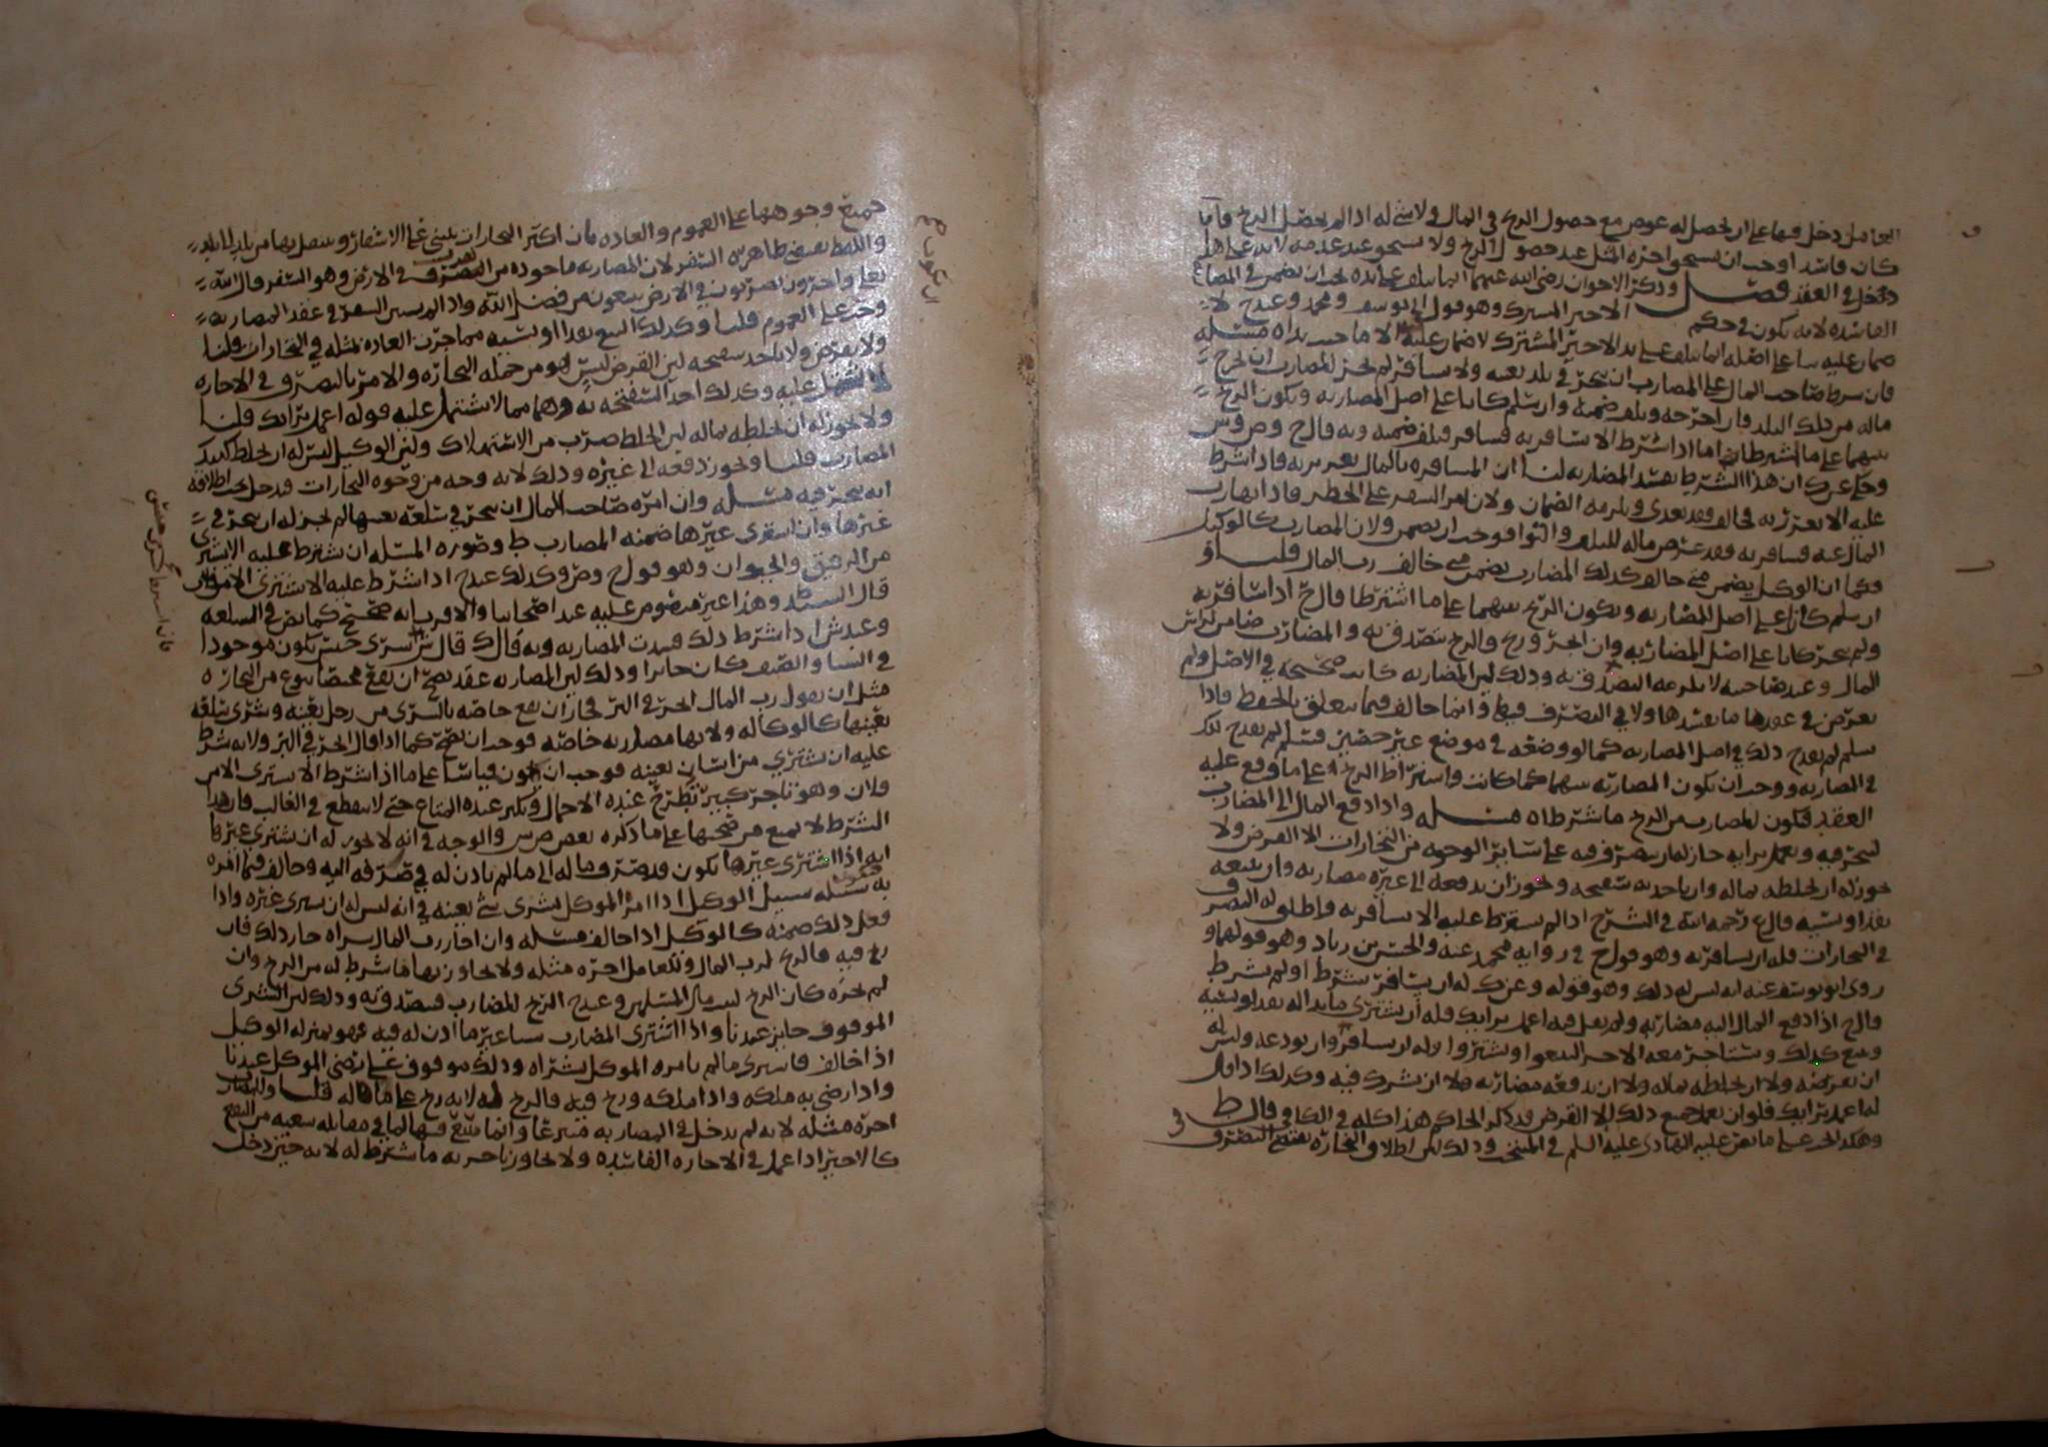 العامل دخل فيها على ان يحصل له عوض مع حصول الربح في المال ولا شي له اذا لم يحصل الربح فاما
كان فاسدا وجب ان يستحق اجرة المثل عند حصول الربح ولا يستحق عند عدمه لانه على هذا
دخل في العقد فصل وذكر الاخوان رضي الله عنهما انما تلف على يده يجب ان يضمن في المضاربه
الفاسده لانه يكون في حكم الاجير المشترك وهو قول ابي يوسف ومحمد وعندح لا
ضمان عليه بنا على اصله انما تلف على يد الاجير المشترك لا ضمان عليه الا ما جنت يداه مسئله
فان شرط صاحب المال على المضارب ان يتجر في بلد بعينه ولا يسافر لم يجز للمضارب ان يخرج
ماله من ذلك البلد فان اخرجه وتلف ضمنه وان سلم كانا على اصل المضاربه ويكون الربح
بينهما على ما اشترطا اما اذا اشترط الا يسافر به فسافر فتلف ضمنه وبه قال ح وص وش
وحكي عن ك ان هذا الشرط يفسد المضاربه لنا ان المسافره بالمال تغرير به فاذا شرط
عليه الا يغرر به فخالف فقد تعدى ويلزمه الضمان ولان امر السفر على الخطر فاذا نهاه رب
المال عنه فسافر به فقد عرض ماله للتلف والتوا فوجب ان يضمن ولان المضارب كالوكيل
فكما ان الوكيل يضمن متى خالف كذلك المضارب يضمن متى خالف رب المال قلنا او
ان سلم كانا على اصل المضاربه ويكون الربح بينهما على ما اشترطا قال ح اذا سافر به
ولم يتجر كانا على اصل المضاربه وان اتجر وربح والربح يتصدق به والمضارب ضامن لراس
المال وعند صاحبيه لا يلزمه التصدق به وذلك لان المضاربه كانت صحيحه في الاصل ولم
يعرض في عقدها ما يفسدها ولا في التصرف فيها وانما خالف فيما يتعلق بالحفظ فاذا
سلم لم يقدح ذلك في اصل المضاربه كما لو وضعه في موضع غير حصين فسلم لم يقدح ذلك
في المضاربه ووجب ان تكون المضاربه بينهما كما كانت واشتراط الربح على ما وقع عليه
العقد فيكون للمضارب من الربح ما شرطاه مسئله واذا دفع المال الى المضارب
ليتجر فيه ويعمل برايه جاز له ان يتصرف فيه على سائر الوجوه من التجارات الا القرض ولا
يجوز له ان يخلطه بماله وان ياخذ به سفتجه ويجوز ان يدفعه الى غيره مضاربه وان يبيعه
نقدا ونسيه قال ع رحمه الله في الشرح اذا لم يشترط عليه الا يسافر به واطلق له التصرف
في التجارات فله ان يسافر به وهو قول ح في روايه محمد عنه والحسن بن زياد وهو قولهما و
روى ابو يوسف عنه انه ليس له ذلك وهو قوله وعن ك له ان يسافر شرط او لم يشرط
قال ح اذا دفع المال اليه مضاربه ولم يقل فيه اعمل برايك فله ان يشتري ما بدا له نقدا ونسيه
وبيع كذلك ويستاجر معه الاجر ليبيعوا ويشتروا وله ان يسافر وان يودعه وليس له
ان يقرضه ولا ان يخلطه بماله ولا ان يدفعه مضاربه ولا ان يشرك فيه وكذلك اذا قال
له اعمل برايك فله ان يعمل جميع ذلك الا القرض وذكر الحاكم هذا كله في الكافي قال ط
وهكذا الحر على ما نص عليه الهادي عليه السلم في المنتخب وذلك لان اطلاق التجاره يقتضي التصرف في
جميع وجوهها على العموم والعاده فان اكثر التجارات يبنى على الاسفار وينتقل بها من بلد الى بلد
واللفظ يقتضي ظاهره السفر لان المضاربه ماخوذه من الضرب في الارض وهو السفر قال الله
تعالى واخرون يضربون في الارض يبتغون من فضل الله واذا لم يستثن السفر في عقد المضاربه
وجب على العموم قلنا وكذلك البيع نقدا او نسيه مما جرت العاده بمثله في التجارات قلنا
ولا يقرض ولا ياخذ سفتجه لان القرض ليس هو من جمله التجاره والامر بالتصرف في الاجاره
لا يشتمل عليه وكذلك اخذ السفتجه به وهما مما لا يشتمل عليه قوله اعمل برايك قلنا
ولا يجوز له ان يخلطه بماله لان الخلط ضرب من الاستهلاك ولان الوكيل ليس له ان يخلط كذلك
المضارب قلنا ويجوز دفعه الى غيره وذلك لانه وجه من وجوه التجارات فدخل تحت اطلاقه
انه يتجر فيه مسئله وان امره صاحب المال ان يتجر في سلعه بعينها لم يجز له ان يتجر في
غيرها وان اشترى غيرها ضمنه المضارب ط وصوره المسئله ان يشترط عليه الا يشتري
من الرقيق والحيوان وهو قول ح وص وكذلك عندح اذا شرط عليه الا يشتري الا من فلان
قال السيد ط وهذا غير منصوص عليه عند اصحابنا والاقرب انه صحيح كما نص في السلعه
وعند ش اذا شرط ذلك فسدت المضاربه وبه قال ك قال ش شرى جنس يكون موجودا
في الشتا والصيف كان جائزا وذلك لان المضاربه عقد يصح ان يقع مختصا بنوع من التجاره
مثل ان يقول رب المال اتجر في البز فجاز ان يقع خاصه بالشرى من رجل بعينه وشرى سلعه
بعينها كالوكاله ولانها مضاربه خاصه فوجب ان تصح كما اذا قال اتجر في البز ولانه شرط
عليه ان يشتري من انسان بعينه فوجب ان يكون قياسا على ما اذا شرط الا يشتري الا من
فلان وهو تاجر كبير تطرح عنده الاحمال ويكثر عنده المتاع حتى لا ينقطع في الغالب فان هذا
الشرط لا يمنع من صحتها على ما ذكره بعض ص ش والوجه في انه لا يجوز له ان يشتري غيرها
انه اذا اشترى غيرها يكون قد صرف ماله الى ما لم ياذن له في صرفه اليه وخالف فيما امره
به سبيله سبيل الوكيل اذا امره الموكل بشرى شي بعينه في انه ليس له ان يشتري غيره واذا
فعل ذلك ضمنه كالوكيل اذا خالف مسئله وان اجاز رب المال شراه جاز ذلك فان
ربح فيه فالربح لرب المال وللعامل اجره مثله ولا يجاوز بها ما شرط له من الربح وان
لم يجزه كان الربح لبيت مال المسلمين وعندح الربح للمضارب فيتصدق به وذلك لان الشرى
الموقوف جايز عندنا واذا اشترى المضارب شيا غير ما اذن له فيه فهو بمنزله الوكيل
اذا خالف فاشترى ما لم يامره الموكل بشراه وذلك موقوف على رضى الموكل عندنا
واذا رضي به ملكه واذا ملكه وربح فيه فالربح له لانه ربح على ماله قلنا وللمضارب
اجره مثله لانه لم يدخل في المضاربه متبرعا وانما يتبع فيها لما في مقابله سعيه من النفع
كالاجير اذا عمل في الاجاره الفاسده ولا يجاوز باجرته ما شرط له لانه حين دخل